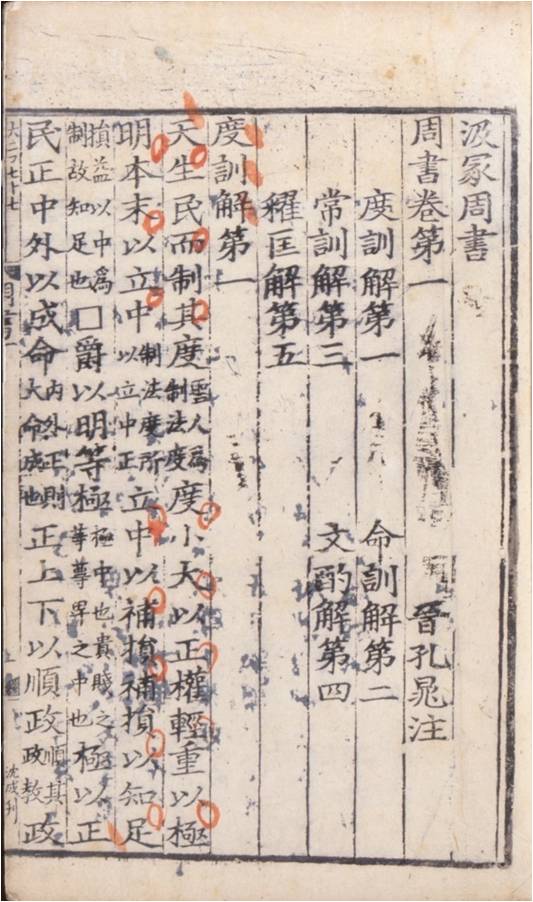 汲冢周書
周書卷第一　晉孔晁注
度訓解第一　命訓解第二
常訓解第三　文酌解第四
糴匡解第五
度訓解第一
天生民而制其度雲人爲制法度度小大以正權輕重以極
明本末以立中制法度所以立中正立中以補損補損以知足
損益以中爲制故知足也□爵以明等極極中也貴賤之等尊卑之中也極以正
民正中外以成命内外正則大命成也正上下以順政順其政教政
沈成刊